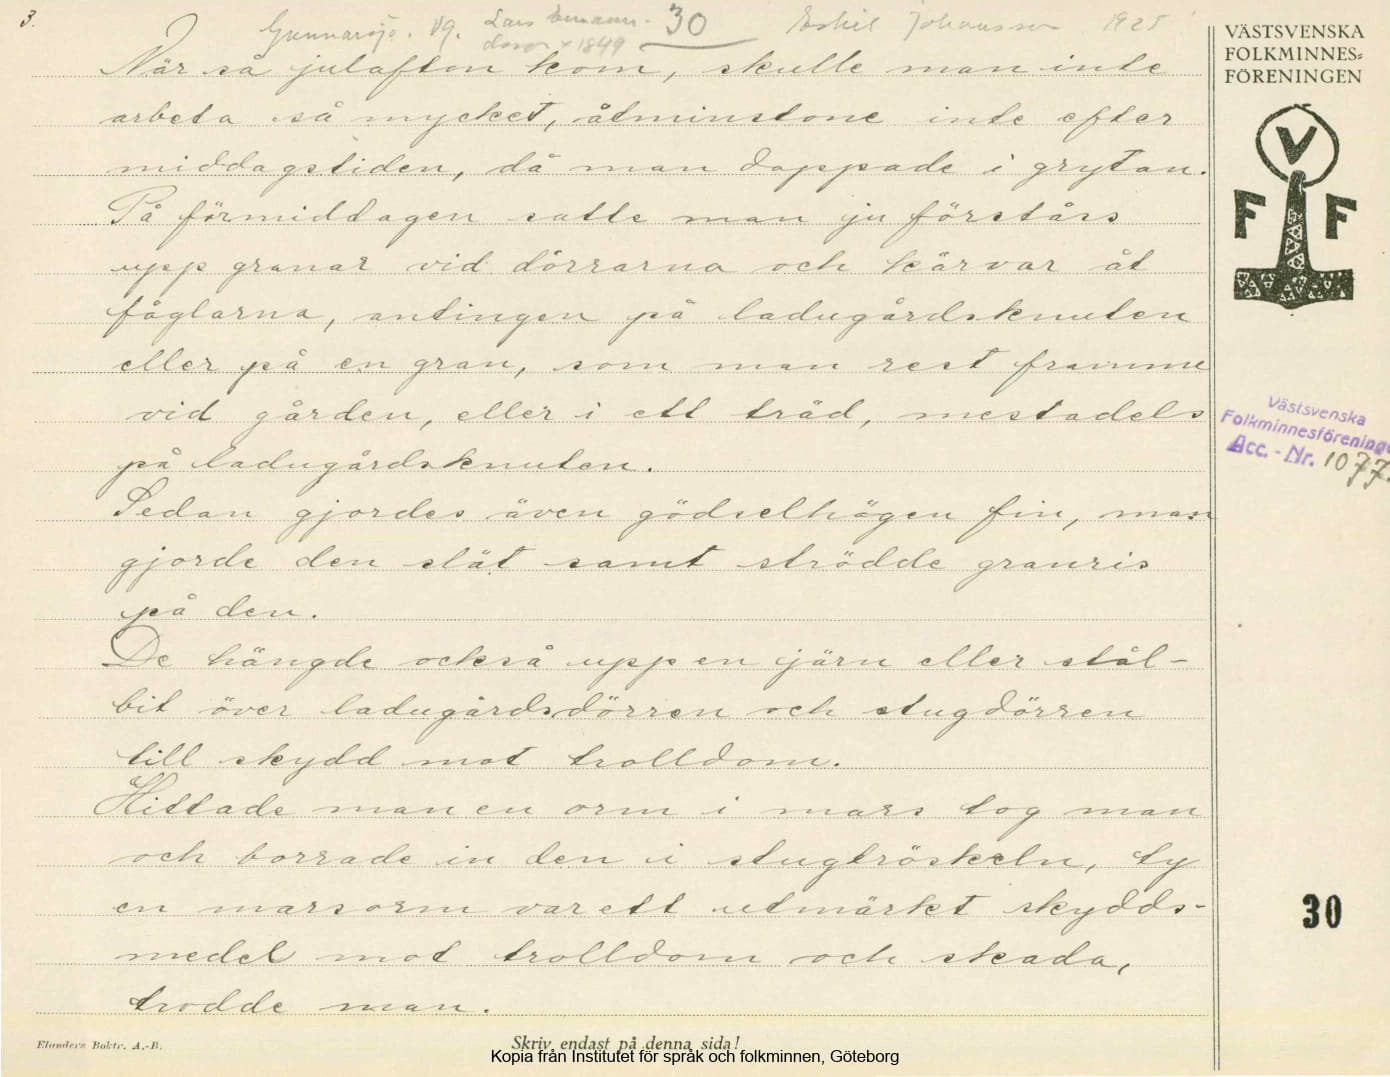 3.
Gunnarsjö. Vg. Lars Emann. 30 Eskil Johansson 1925
× 1849
När så julafton kom, skulle man inte
arbeta så mycket, åtminstone inte efter
middagstiden, då man doppade i grytan.
På förmiddagen satte man ju förståss
upp granar vid dörrarna och kärvar åt
fåglarna, antingen på ladugårdsknuten
eller på en gran, som man rest framme
vid gården, eller i ett träd, mestadels
på ladugårdsknuten.
Sedan gjordes även gödselhögen fin, man
gjorde den slät samt strödde granris
på den.
De hängde också upp en järn eller stål-
bit över ladugårdsdörren och stugdörren
till skydd mot trolldom.
Hittade man en orm i mars tog man
och borrade in den i stugtröskeln, ty
en marsorm var ett utmärkt skydds-
medel mot trolldom och skada,
trodde man.
VÄSTSVENSKA
FOLKMINNES-
FÖRENINGEN
V
F F
Västsvenska
Folkminnesförening
Acc. - Nr. 1077.
30
Elanders Boktr. A.-B.
Skriv endast på denna sida!
Kopia från Institutet för språk och folkminnen, Göteborg